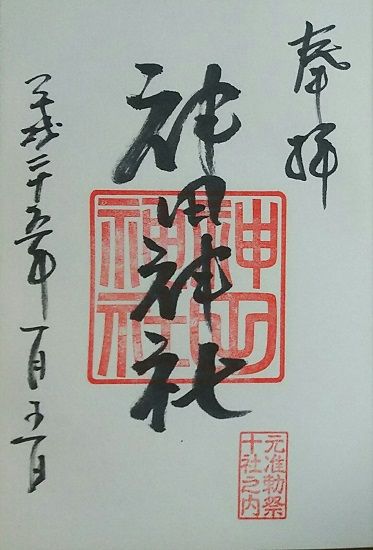 奉拝
神田神社
神田
神社
元准勅祭
十社之内
平成二十五年一月